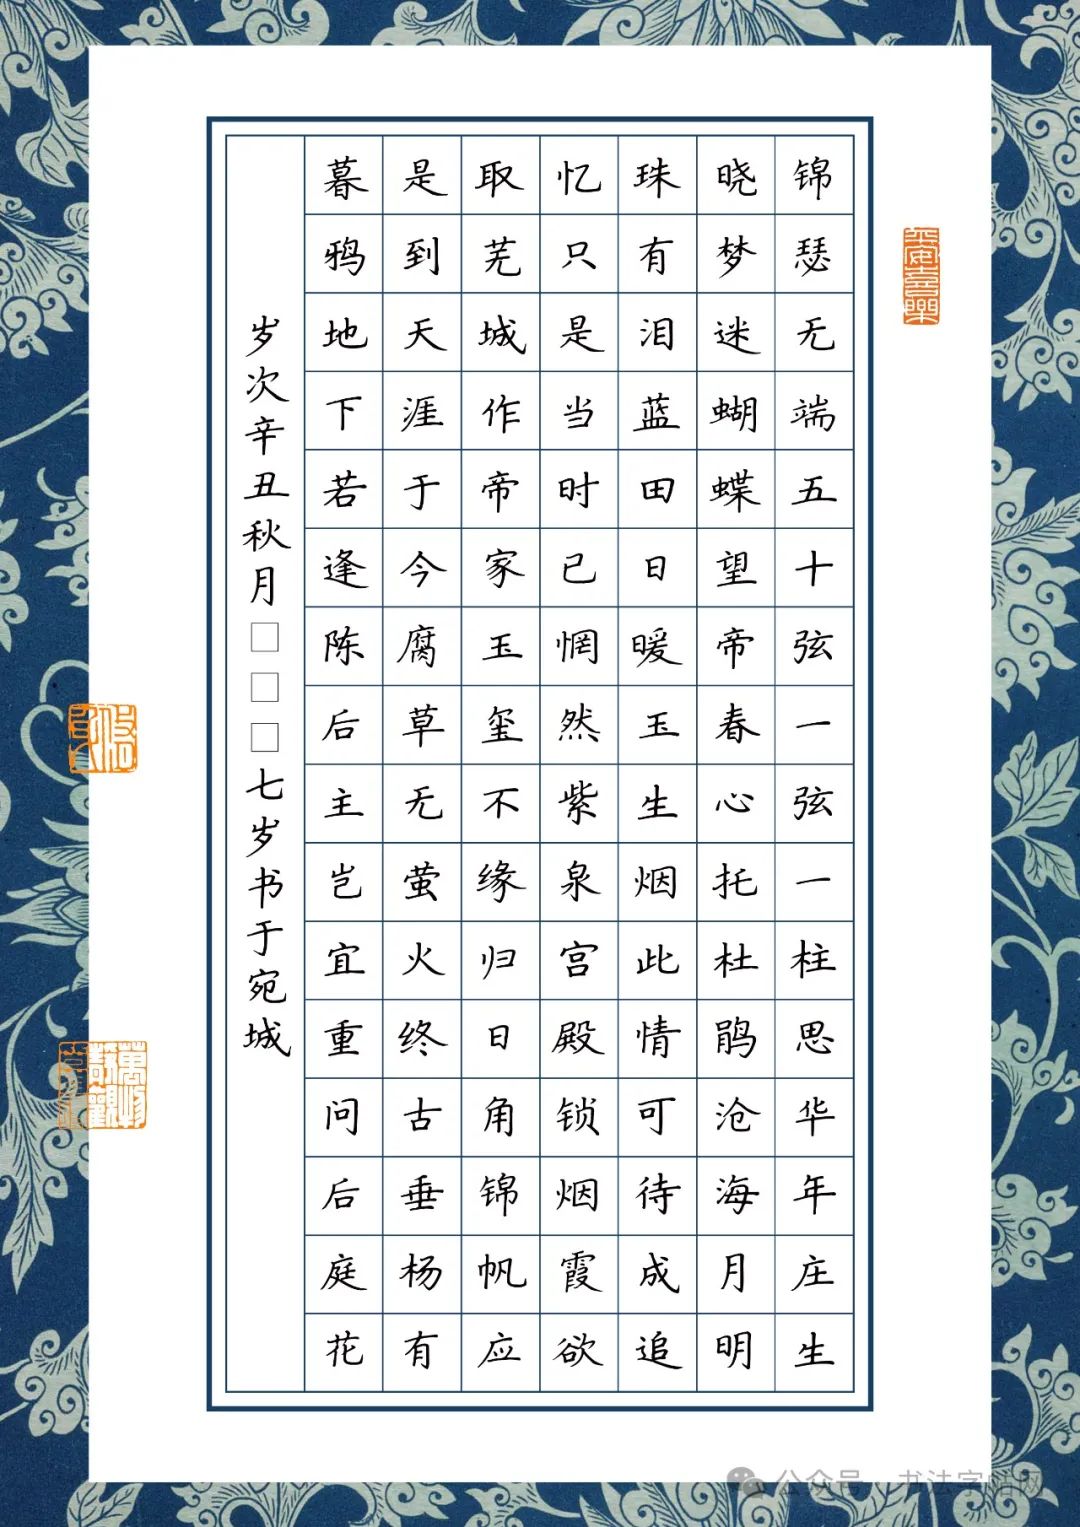 锦瑟无端五十弦一弦一柱思华年庄生
晓梦迷蝴蝶望帝春心托杜鹃沧海月明
珠有泪蓝田日暖玉生烟此情可待成追
忆只是当时已惘然紫泉宫殿锁烟霞欲
取芜城作帝家玉玺不缘归日角锦帆应
是到天涯于今腐草无萤火终古垂杨有
暮鸦地下若逢陈后主岂宜重问后庭花
岁次辛丑秋月□□□七岁书于宛城
平安喜乐
万物静观
公众号·书法字帖网